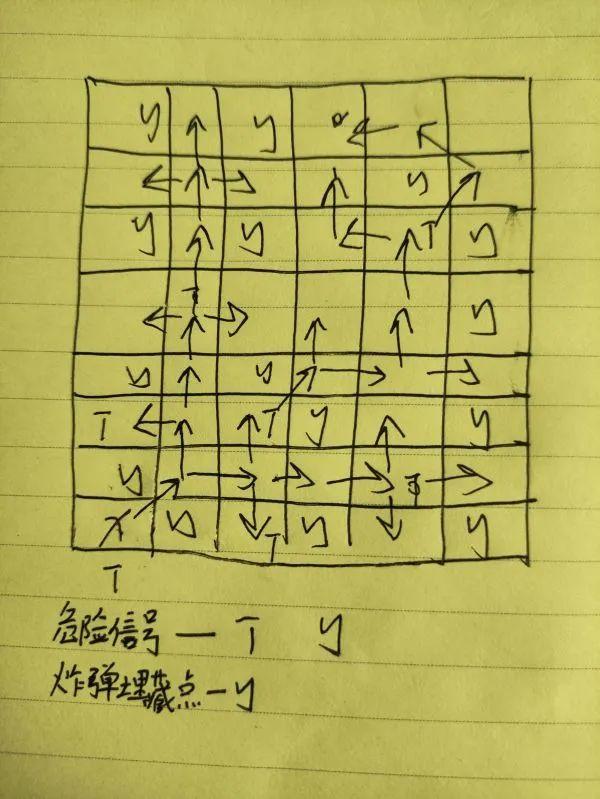 y y
y
y y T y
T
y
y y
T T y y
y T
x y T y y
T
危险信号 — T y
炸弹埋藏点 — y